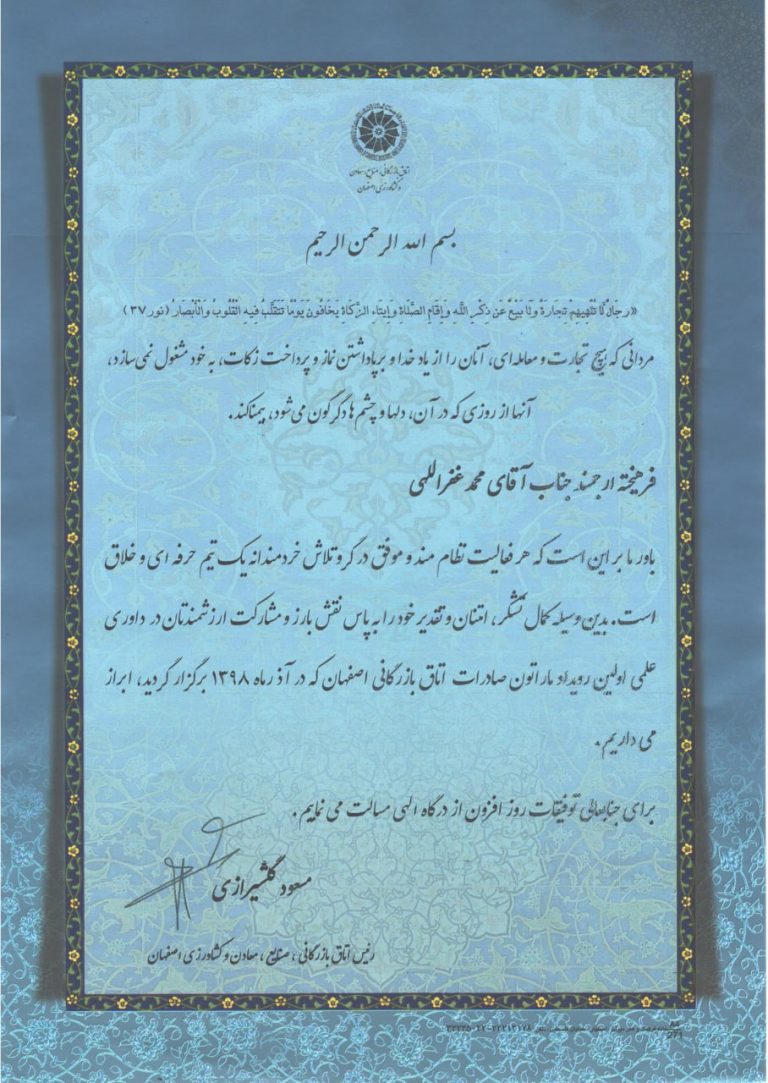 اتاق بازرگانی، صنایع، معادن
و کشاورزی اصفهان
بسم الله الرحمن الرحیم
«رِجَالٌ لَّا تُلْهِيهِمْ تِجَارَةٌ وَلَا بَيْعٌ عَن ذِكْرِ اللَّهِ وَإِقَامِ الصَّلَاةِ وَإِيتَاء الزَّكَاةِ يَخَافُونَ يَوْمًا تَتَقَلَّبُ فِيهِ الْقُلُوبُ وَالْأَبْصَارُ (نور ۳۷)
مردانی که هیچ تجارت و معامله‌ای، آنان را از یاد خدا و برپاداشتن نماز و پرداخت زکات، به خود مشغول نمی‌سازد،
آنها از روزی که در آن، دلها و چشم‌ها دگرگون می‌شود، بیمناکند.
فرهیخته ارجمند جناب آقای محمد غفراللهی
باور ما بر این است که هر فعالیت نظام مند و موفق در گرو تلاش خردمندانه یک تیم حرفه ای و خلاق
است. بدین وسیله کمال تشکر، امتنان و تقدیر خود را به پاس نقش بارز و مشارکت ارزشمندتان در داوری
علمی اولین رویداد ماراتون صادرات اتاق بازرگانی اصفهان که در آذر ماه ۱۳۹۸ برگزار گردید، ابراز
می داریم.
برای جنابعالی توفیقات روز افزون از درگاه الهی مسالت می نماییم.
مسعود گلشیرازی
رئیس اتاق بازرگانی، صنایع، معادن و کشاورزی اصفهان